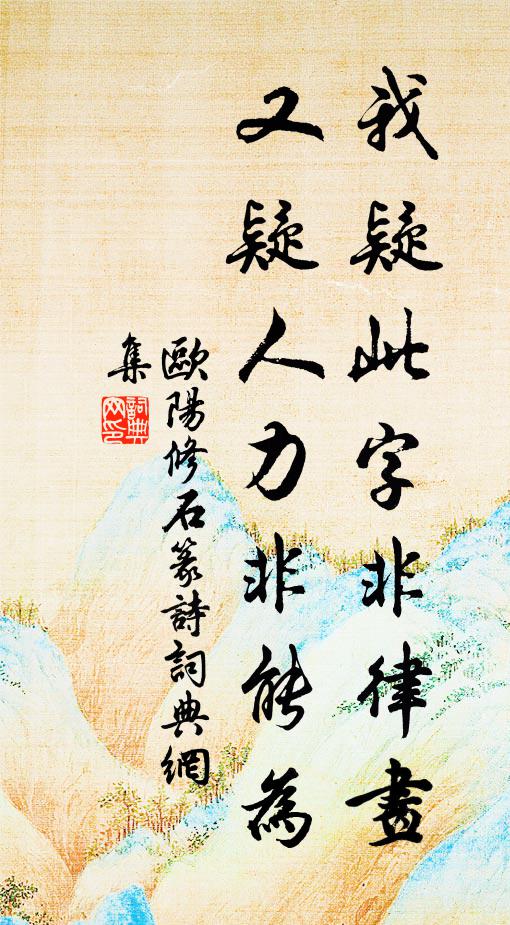 我疑此字非律畫
又疑人力非能為
歐陽修石篆詩詞典網
集
詞典
网印